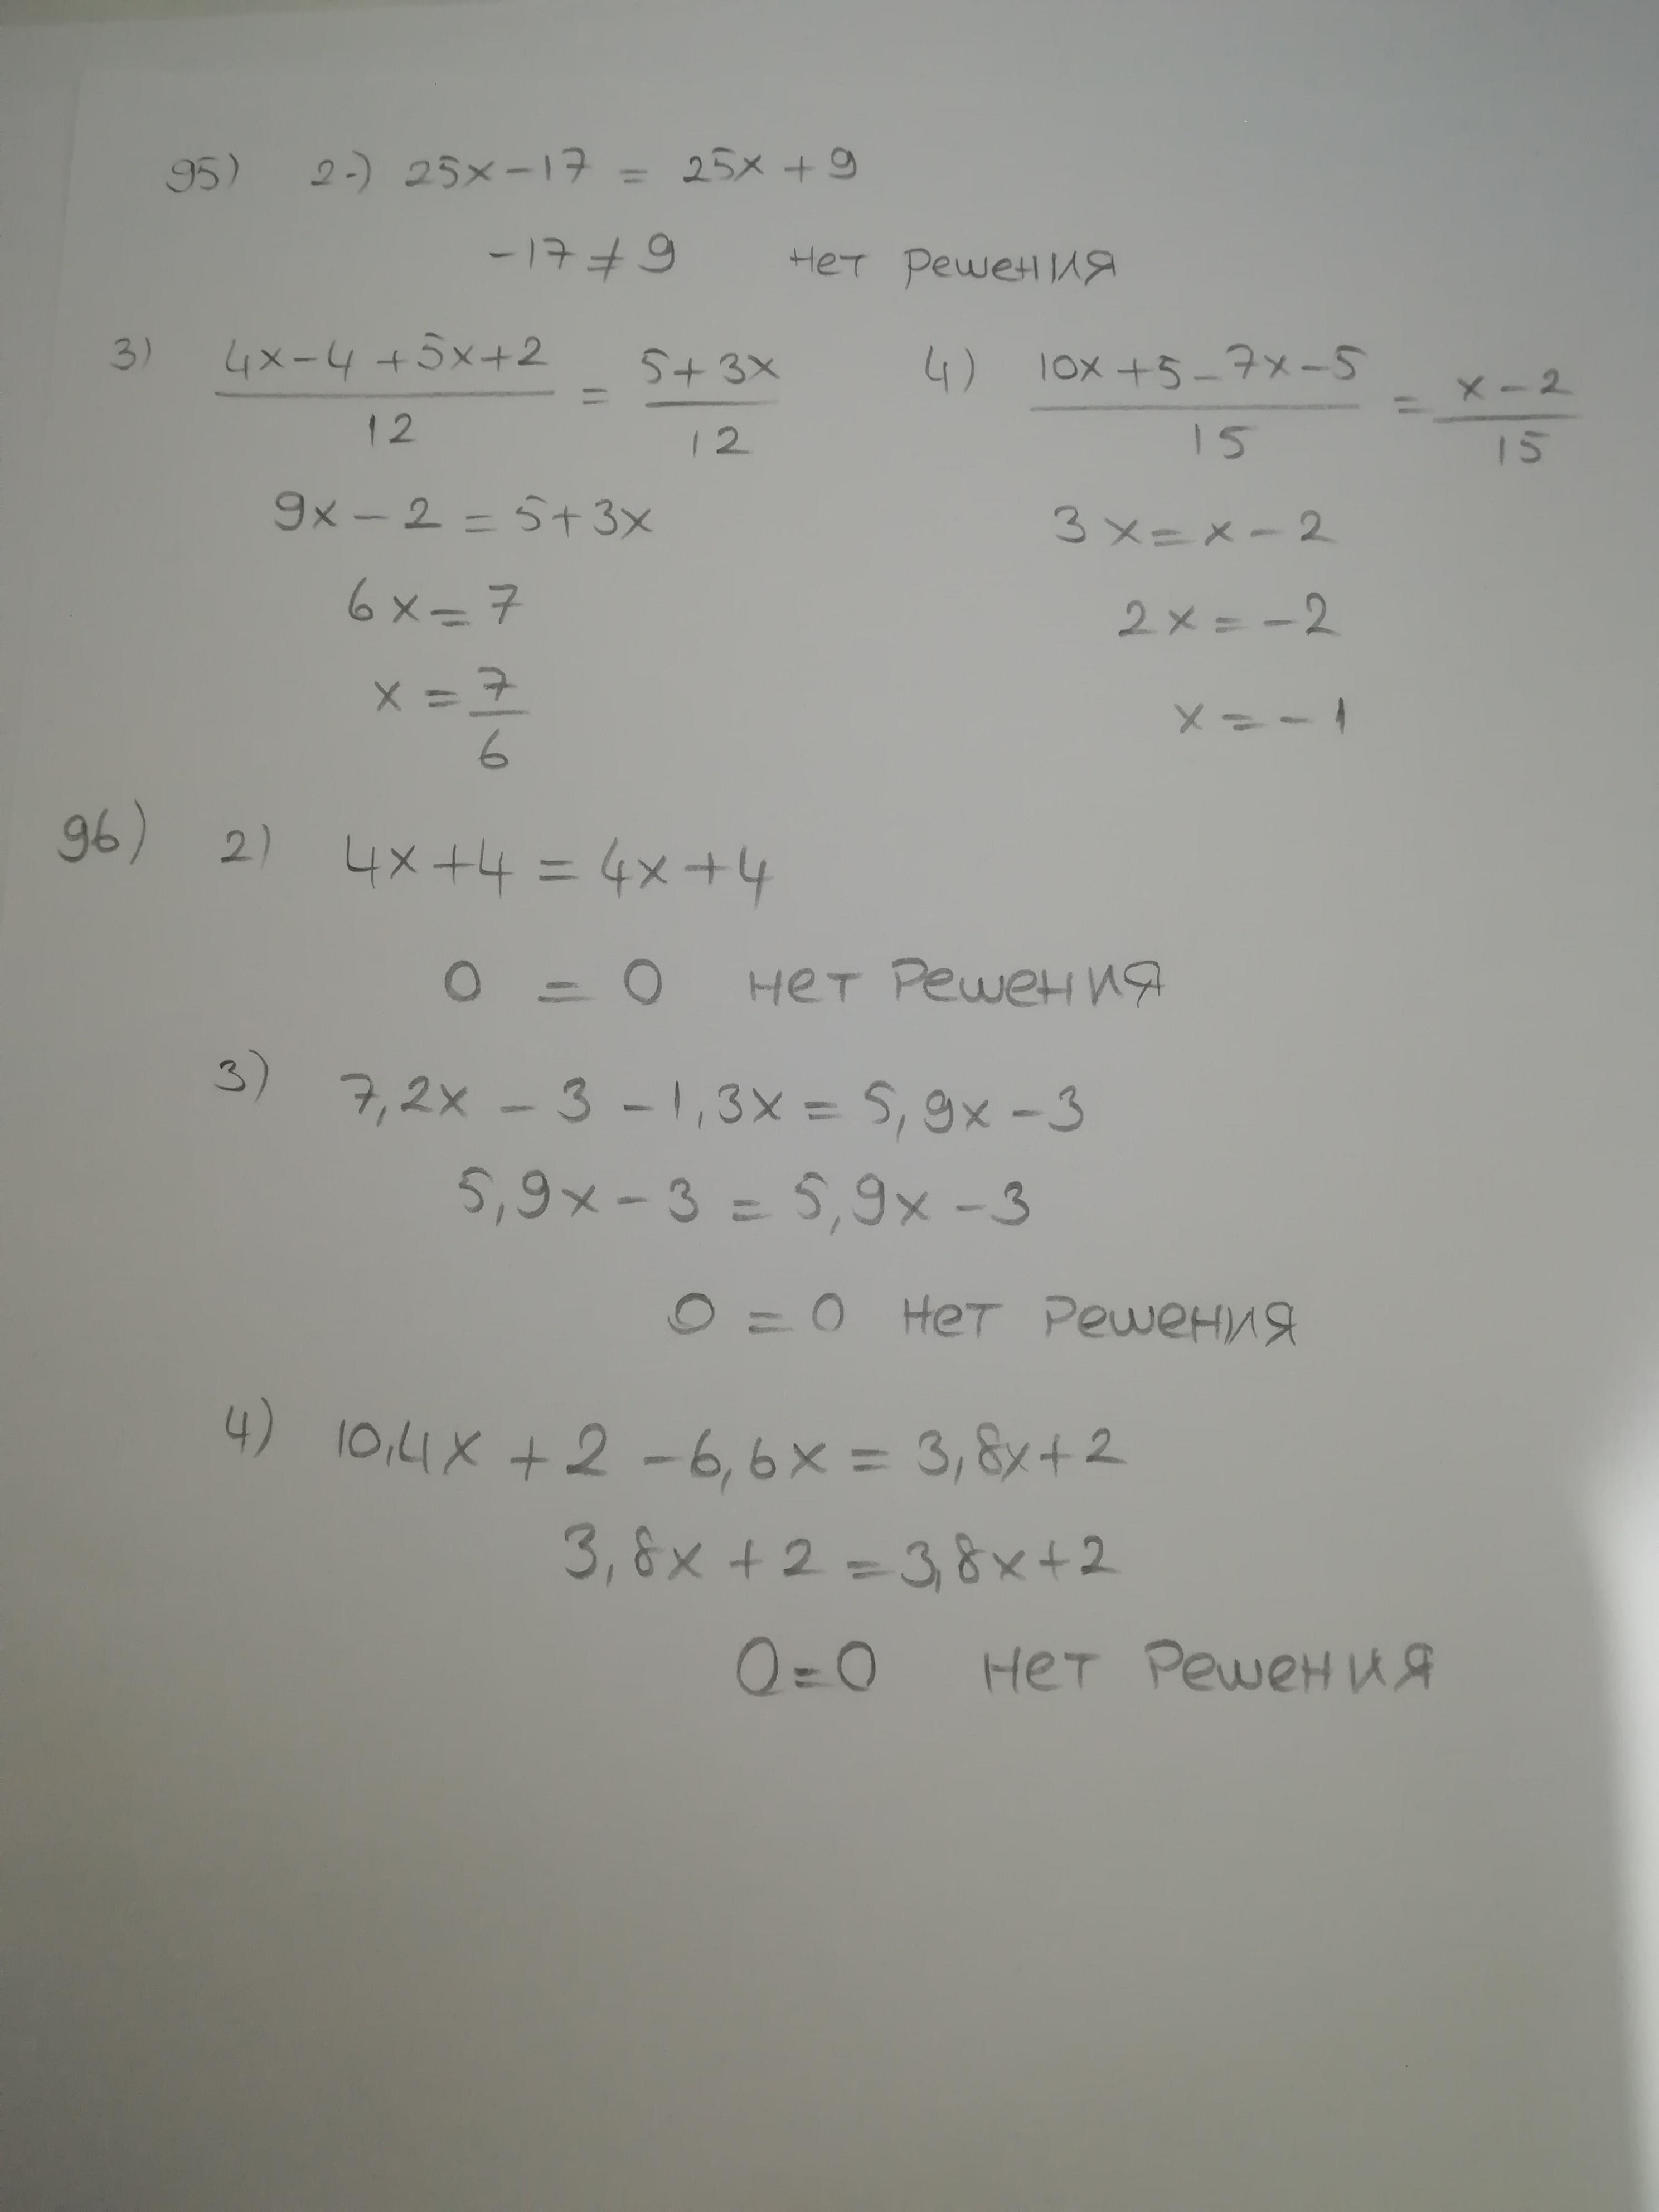 95) 2-) 25x-17 = 25x+9
-17≠9 нет решения
3) (4x-4+5x+2)/12 = (5+3x)/12
9x-2=5+3x
6x=7
x=7/6
4) (10x+5-7x-5)/15 = (x-2)/15
3x=x-2
2x=-2
x=-1
96) 2) 4x+4=4x+4
0 = 0 нет решения
3) 7,2x-3-1,3x=5,9x-3
5,9x-3=5,9x-3
0=0 нет решения
4) 10,4x+2-6,6x=3,8x+2
3,8x+2=3,8x+2
0=0 нет решения